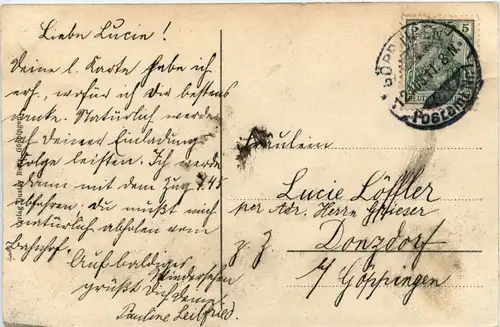 Liebe Lucie!
Deine l. Karte habe ich
erh. wofür ich dir bestens
danke. Natürlich werde
ich deiner Einladung
Folge leisten. Ich werde
dann mit dem Zug 1.45
abfahren. Du mußt mich
natürlich abholen vom
Bahnhof.
Auf baldiges
Wiedersehen
grüßt Dich
Pauline
5
GÖPPINGEN
Fräulein
Lucie Löffler
per Adr. Herrn Grieser
z. Z. Donzdorf
b/ Göppingen